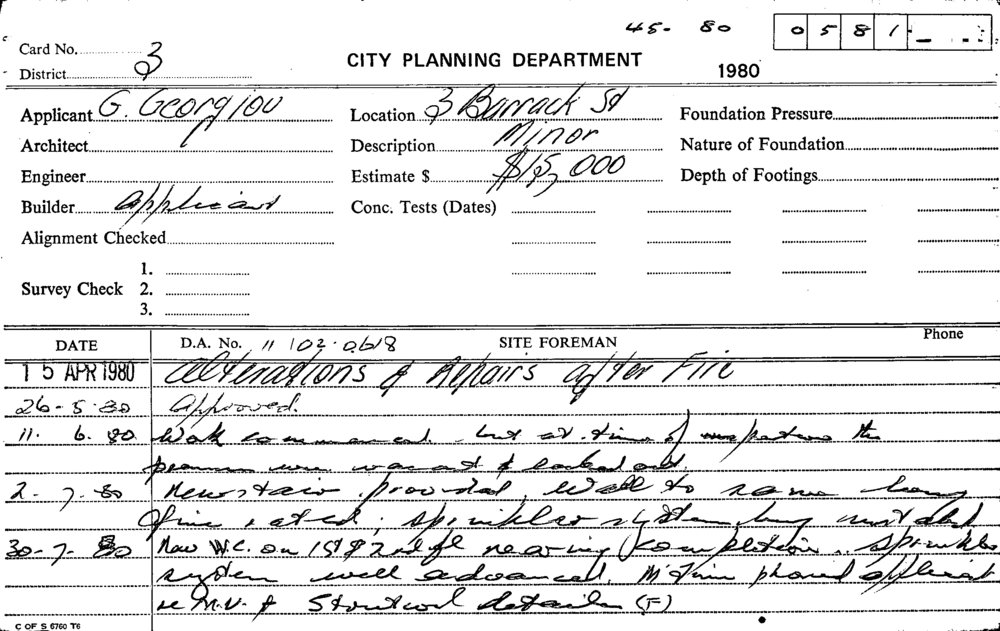 45- 80 0581
Card No. 3
District 2
CITY PLANNING DEPARTMENT
1980
Applicant G. Georgiou
Location 3 Barrack St
Foundation Pressure
Architect
Description Minor
Nature of Foundation
Engineer
Estimate $ $15,000
Depth of Footings
Builder Applicant
Conc. Tests (Dates)
Alignment Checked
1.
Survey Check 2.
3.
DATE D.A. No. 11 102.0618 SITE FOREMAN Phone
15 APR 1980 Alterations & Repairs after Fire
26-5-80 Approved.
11. 6. 80 Work commenced but at time of inspection the
premises were vacant & locked out.
2-7-80 New stair provided, wall to same being
fire rated; sprinkler system being installed
30-7-80 New W.C. on 1st & 2nd fl nearing completion. Sprinkler
system well advanced. phoned applicant
re M.V. & details (F)
C OF S 6760 T6